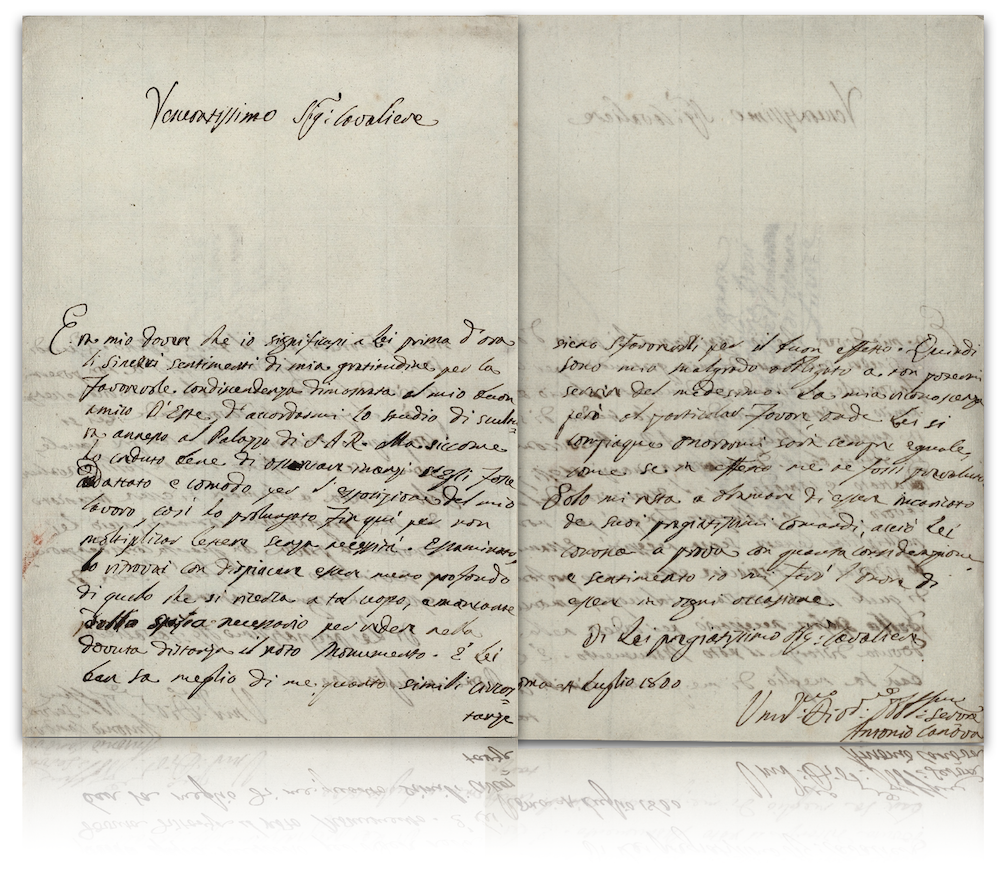 Veneratissimo Sig.r Cavaliere
Era mio dovere che io significassi a Lei prima d'ora
li sinceri sentimenti di mia gratitudine per la
favorevole condiscendenza dimostrata al mio buon
amico D'Este d'accordarmi lo studio di scultu=
ra annesso al Palazzo di S.A.R. Ma siccome
ho creduto bene di osservare innanzi s'egli fosse
adattato e comodo per l'esposizione del mio
lavoro, così ho prolungato fin qui per non
moltiplicar lettere senza necessità. Essaminato
lo ritrovai con dispiacere esser meno profondo
di quello che si ricerca a tal uopo, e mancante
dello spazio necessario per veder nella
dovuta distanza il noto Monumento. E Lei
ben sa meglio di me quanto simili circos=
tanze
sieno sfavorevoli per il buon effetto. Quindi
sono mio malgrado obbligato a non potermi
servir del medesimo. La mia riconoscenza
però al particolar favore onde Lei si
compiaque onorarmi sarà sempre eguale,
come se in effetto me ne fossi prevaluto
Solo mi resta a bramare di esser incaricato
de suoi pregiatissimi comandi, acciò Lei
conosca a prova con quanta considerazione
e sentimento io mi farò l'onore di
esser in ogni occasione
Di Lei pregiatissimo Sig.r Cavaliere
Luglio 1800
Um.mo Div.mo Obb.mo Servre
Antonio Canova